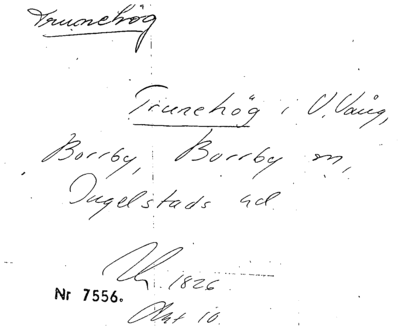 Trunehög
Trunehög i V. Vång,
Borrby, Borrby sn,
Ingelstads hd
1826
Nr 7556.
Akt 10